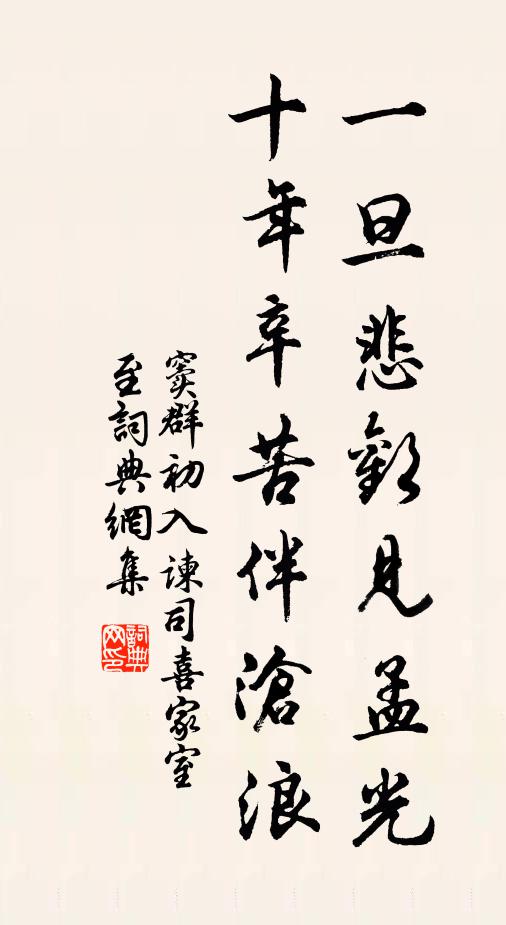 一旦悲歡見孟光
十年辛苦伴滄浪
竇群初入諫司喜家室
至詞典網集
詞典網印